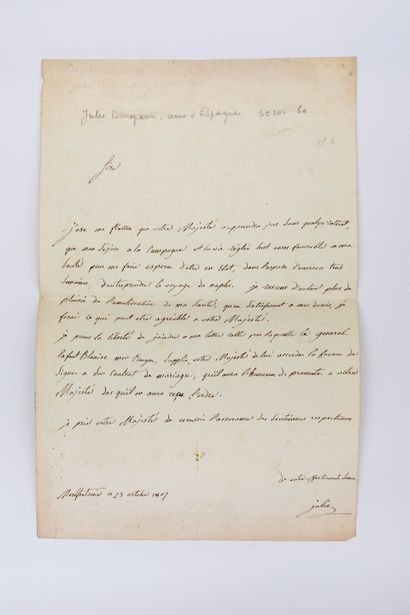 Julie Bonaparte, reine d'Espagne SEROV 60
N° 1
Sire
j'ose me flatter que votre Majesté apprendra pas sans quelqu'intérêt,
que mon séjour a la Campagne et la vie réglée sont assez favorable a ma
santé pour me faire espérer d'etre en Etat, dans l'espace d'environ trois
semaines, d'entreprendre le voyage de naples. je ressens d'autant plus de
plaisir de l'amélioration de ma santé, qu'en satisfaisant a mes devoirs, je
ferais ce qui peut etre agréable a votre Majesté.
je prens la liberté de joindre a ma lettre celle par laquelle le général
lafont Blaniac mon Ecuyer, supplie votre Majesté de lui accorder la faveur de
signer a son contrat de mariage, qu'il aura l'honneur de presenter a votre
Majesté dès qu'il en aura reçu l'ordre.
je prie votre Majesté de recevoir l'assurance des sentimens respectueux
de votre affectionnée soeur
Morfontaine ce 23 octobre 1807
julie